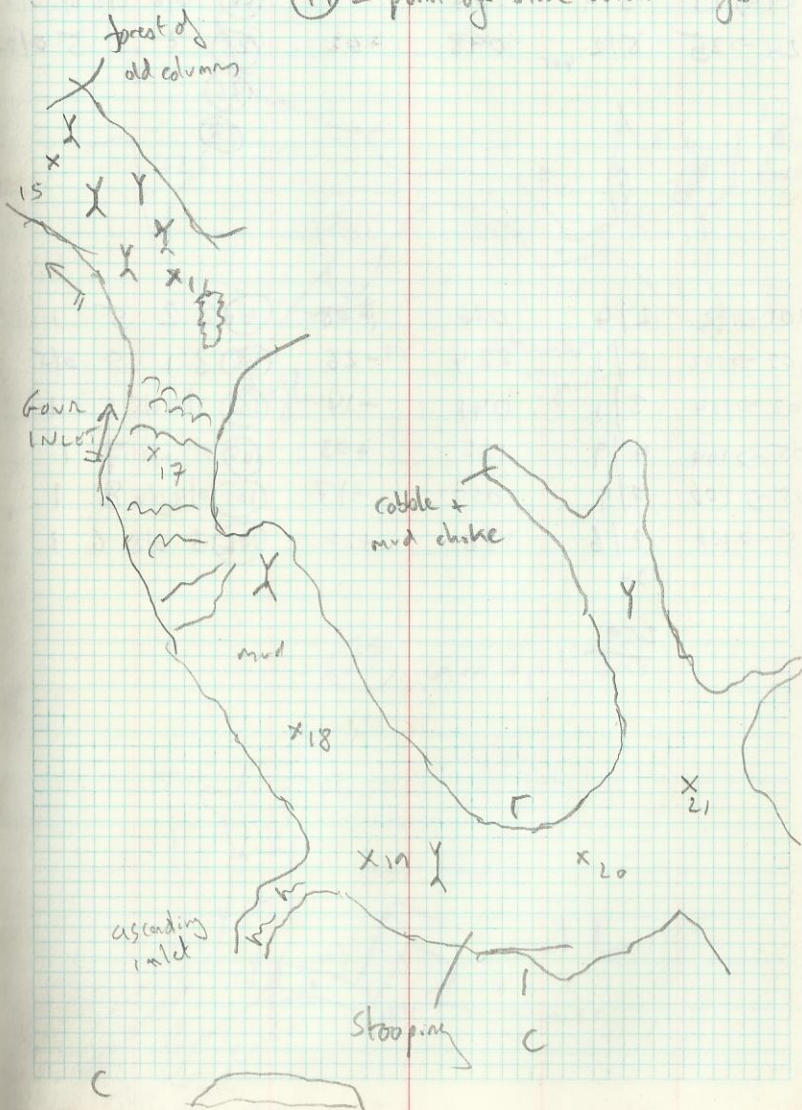 14 - point
forest of
old columns
15
x 16
GOUR
INLET
x 17
cobble +
mud choke
mud
x 18
x 21
x 19
x 20
ascending
inlet
Stooping
C
C